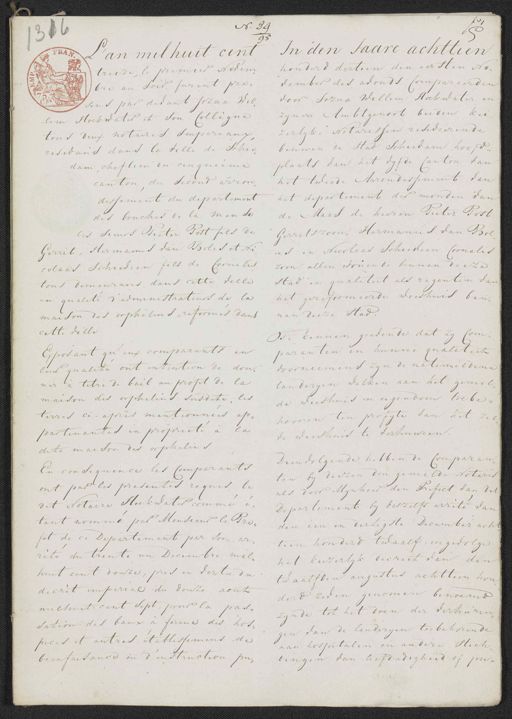 1316
N. 89
95
L'an mil huit cent
treize, le premier Novem
bre au Soir furent pré
sens par devant Jozua Wil
lem Stokwater et son Collègue
tous deux notaires Imperiaux,
residants dans la Ville de Schie
dam, cheflieu du cinquieme
canton, du second arron
dissement du departement
des bouches de la meuse
les Sieurs Pieter Post fils de
Gerrit, Hermanus van Bol es et Ni
colaas Scheideen fils de Cornelis
tous demeurans dans cette Ville
en qualité d'administrateurs de la
maison des orphelins reformés dans
cette Ville
Exposant qu'eux comparants en
leur qualité ont intention de don
ner à titre de bail au profit de la
maison des orphelins susdite, les
terres ci après mentionnées ap
partenantes en propriété à la
dite maison des orphelins
En conséquence les Comparants
ont par les présentes requis le
dit Notaire Stokwater comme é
tant nommé par Monsieur le Pre
fet de ce Departement par son ar
rêté du trente un Decembre mil
huit cent douze, pris en vertu du
decrit imperial du douze aout
mil huit cent sept, pour la pas
sation des baux à ferme des hos
pices et autres établissemens de
bienfaisance ou d'instruction pu
In den Jaare achttien
honderd dertien den eersten No
vember des avonds Compareerden
voor Jozua Willem Stokwater en
zijnen Ambtgenoot beiden Kei
zerlijke Notarissen resideerende
binnen de Stad Schiedam hoofd
plaats van het vijfde Canton van
het tweede Arrondissement van
het departement der monden van
de Maas de heeren Pieter Post
Gerritszoon Hermanus van Bol
es en Nicolaas Scheideen Cornelis
zoon allen woonende binnen deeze
Stad in qualiteit als regenten van
het gereformeerde Weeshuis bin
nen deeze Stad
Te kennen geevende dat zij Com
paranten in hunne qualiteit
voorneemens zijn de natemeldene
landerijen
het Weeshuis in eigendom toebe
hoorende ten profijte van het zel
ve Weeshuis te verhuuren
Dienvolgende hebben de Comparan
ten bij deezen den gemelde Notaris
als door Mijnheer den Prefect van dit
Departement bij deszelfs arrêté van
den een en dertigste December acht
tien honderd twaalf, ingevolge
het keizerlijk decreet van den
twaalfden augustus achttien hon
derd zeven genomen benoemd
zijnde tot het doen der verhuurin
gen van de landerijen toebehoorende
aan hospitalen en andere Stich
tingen van liefdadigheid of pu